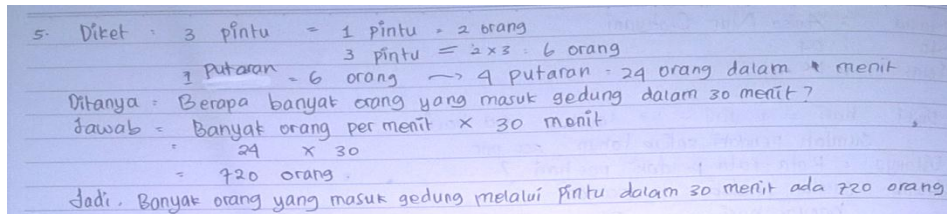 5. Diket : 3 pintu = 1 pintu = 2 orang
3 pintu = 2 x 3 : 6 orang
1 Putaran = 6 orang → 4 putaran = 24 orang dalam 1 menit
Ditanya = Berapa banyak orang yang masuk gedung dalam 30 menit?
Jawab = Banyak orang per menit x 30 menit
= 24 x 30
= 720 orang.
Jadi, Banyak orang yang masuk gedung melalui pintu dalam 30 menit ada 720 orang